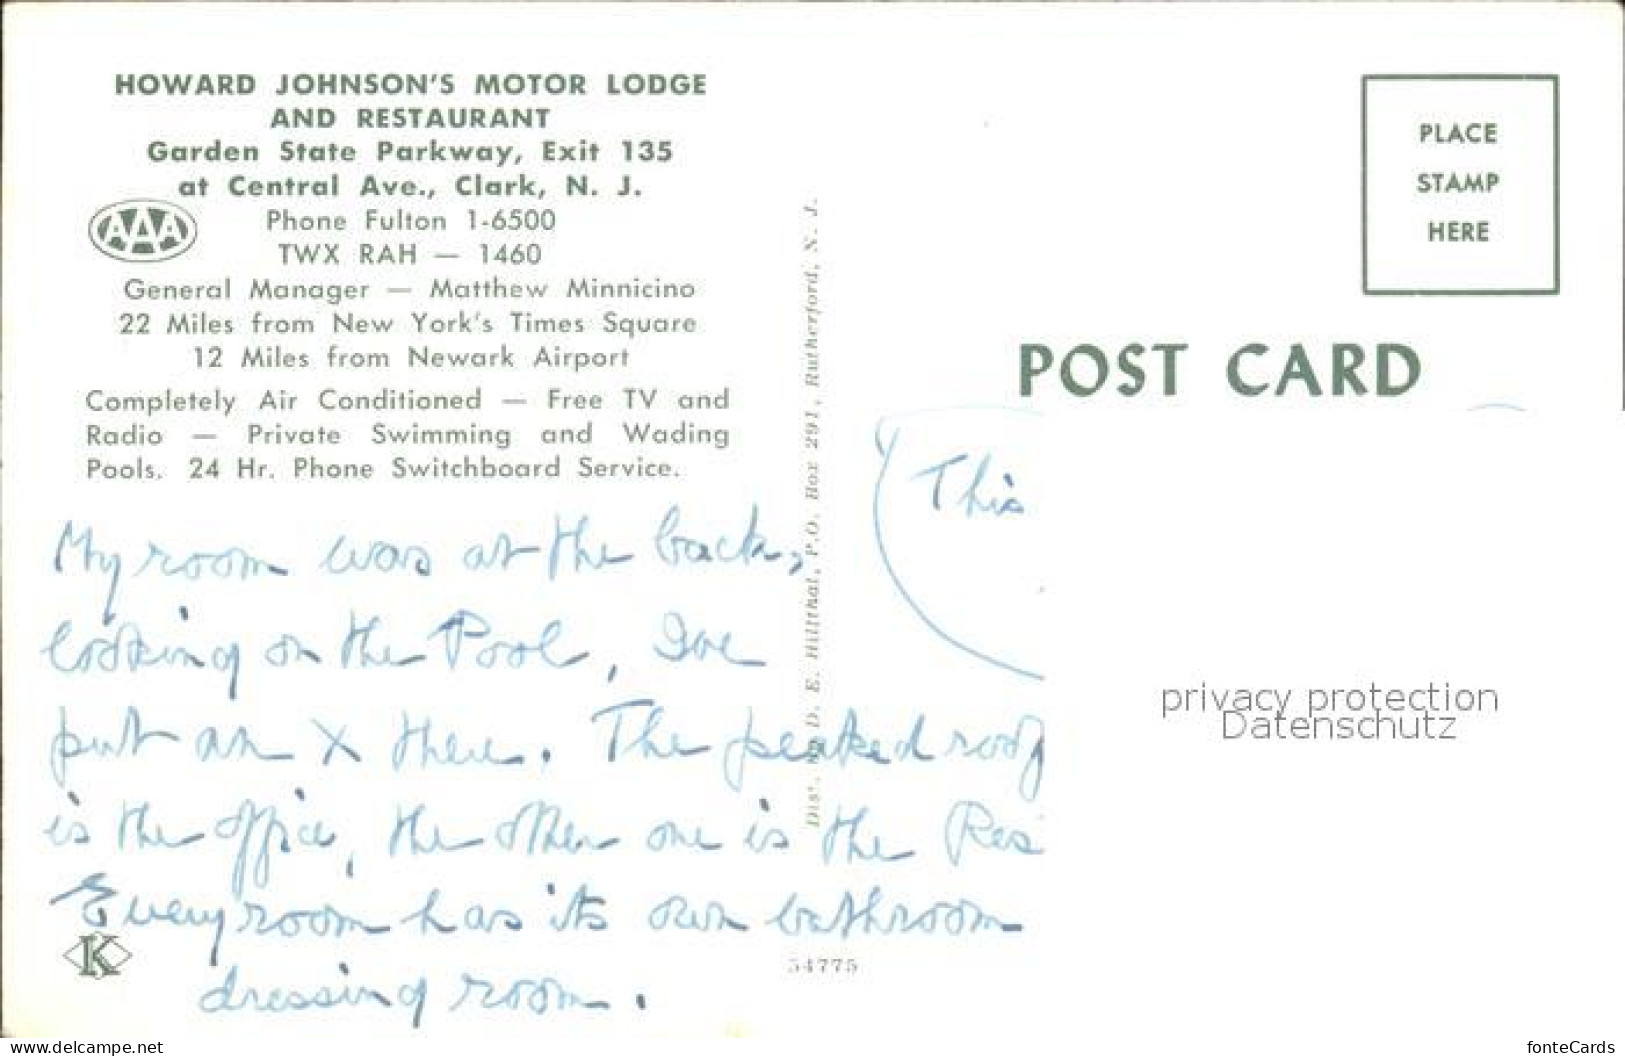 HOWARD JOHNSON'S MOTOR LODGE
AND RESTAURANT
Garden State Parkway, Exit 135
at Central Ave., Clark, N. J.
AAA
Phone Fulton 1-6500
TWX RAH — 1460
General Manager — Matthew Minnicino
22 Miles from New York's Times Square
12 Miles from Newark Airport
Completely Air Conditioned — Free TV and
Radio — Private Swimming and Wading
Pools. 24 Hr. Phone Switchboard Service.
My room was at the back,
looking on the Pool, I've
put an X there. The peaked roof
is the office, the other one is the Res
Every room has its own bathroom
dressing room.
K
54775
Dist. by D. E. Hillthal, P.O. Box 291, Rutherford, N. J.
PLACE
STAMP
HERE
POST CARD
This
privacy protection
Datenschutz
www.delcampe.net
fonteCards